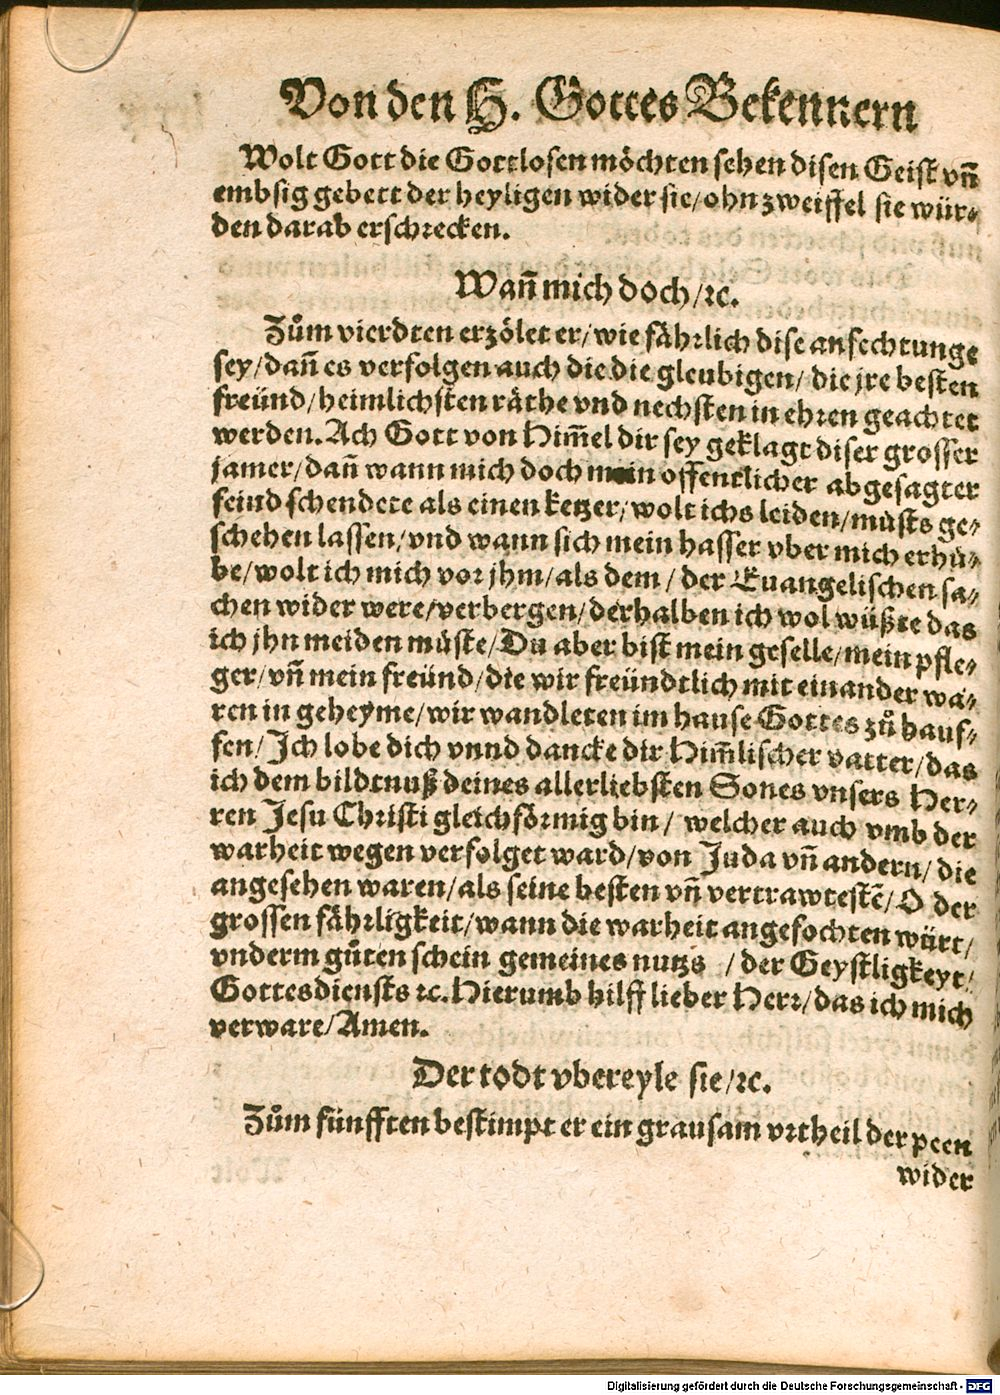 Von den H. Gottes Bekennern
Wolt Gott die Gottlosen möchten sehen disen Geist vñ
embsig gebett der heyligen wider sie/ ohn zweiffel sie wür⸗
den darab erschrecken.
Wañ mich doch/ ꝛc.
Zům vierdten erzölet er/ wie fährlich dise anfechtunge
sey/ dañ es verfolgen auch die die gleubigen/ die jre besten
freünd/ heimlichsten räthe vnd nechsten in ehren geachtet
werden. Ach Gott von Him̃el dir sey geklagt diser grosser
jamer/ dañ wann mich doch mein offentlicher abgesagter
feind schendete als einen ketzer/ wolt ichs leiden/ müsts ge⸗
schehen lassen/ vnd wann sich mein hasser vber mich erhü⸗
be/ wolt ich mich vor jhm/ als dem/ der Euangelischen sa⸗
chen wider were/ verbergen/ derhalben ich wol wüßte das
ich jhn meiden müste/ Du aber bist mein geselle/ mein pfle⸗
ger/ vñ mein freünd/ die wir freündtlich mit einander wa⸗
ren in geheyme/ wir wandleten im hause Gottes zů hauf⸗
fen/ Ich lobe dich vnnd dancke dir Him̃lischer vatter/ das
ich dem bildtnuß deines allerliebsten Sones vnsers Her⸗
ren Jesu Christi gleichförmig bin/ welcher auch vmb der
warheit wegen verfolget ward/ von Juda vñ andern/ die
angesehen waren/ als seine besten vñ vertrawtestẽ/ O der
grossen fährligkeit/ wann die warheit angefochten würt/
vnderm gůten schein gemeines nutzs / der Geystligkeyt/
Gottesdiensts ꝛc. Hierumb hilff lieber Herr/ das ich mich
verware/ Amen.
Der todt vbereyle sie/ ꝛc.
Zům fünfften bestimpt er ein grausam vrtheil der peen
wider
Digitalisierung gefördert durch die Deutsche Forschungsgemeinschaft - DFG